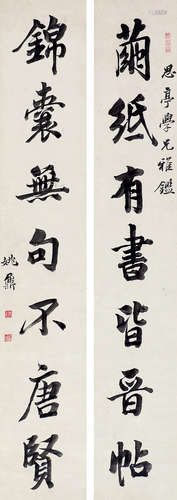 繭紙有書皆晉帖
思亭學兄雅鑑
錦囊無句不唐賢
姚鼐